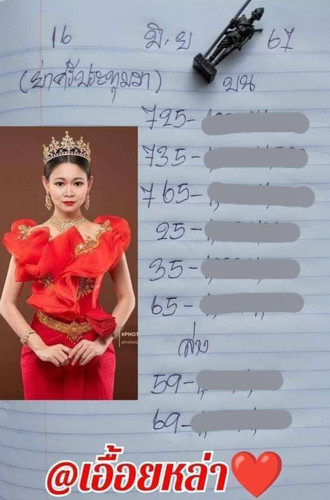 16 มิ.ย 67
(ย่าศรีปะทุมมา) บน
725-
735-
765-
25-
35-
65-
ล่าง
59-
69-
#PHOT
@เอื้อยหล่า